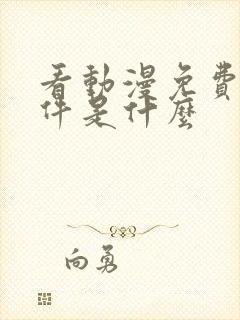 看動漫免費
件是什麼
向勇